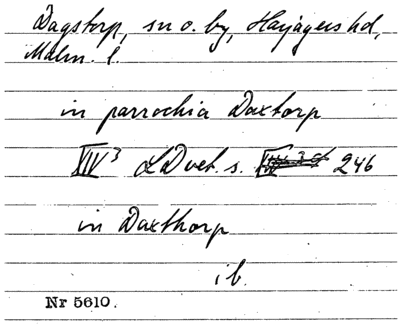 Dagstorp, sn o. by, Harjagers hd,
Malm. l.
in parrochia Daxtorp
XIV 3 LDvet. s. 246
in Daxthorp
ib.
Nr 5610.